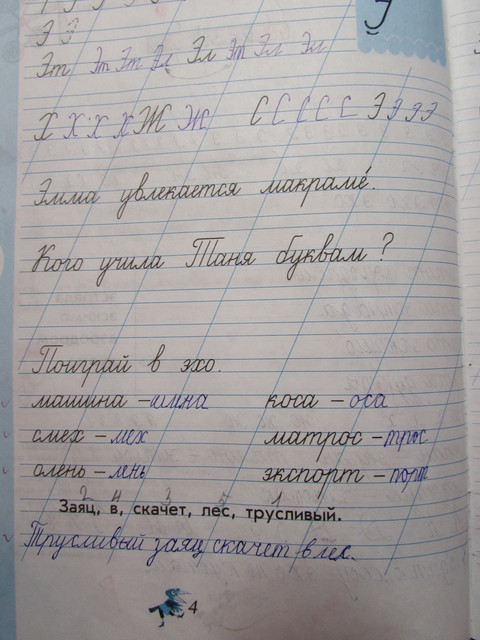 Э Э
Эт Эт Эт Эл Эл Эт Эл Эл
Х Х Х Х Ж Ж С С С С С Э Э Э Э
Эмма увлекается макраме́.
Кого учила Таня буквам?
Поиграй в эхо.
машина – шина коса – оса
смех – мех матрос – трос
олень – лень экспорт – порт
2 4 3 5 1
Заяц, в, скачет, лес, трусливый.
Трусливый заяц скачет в лес.
4